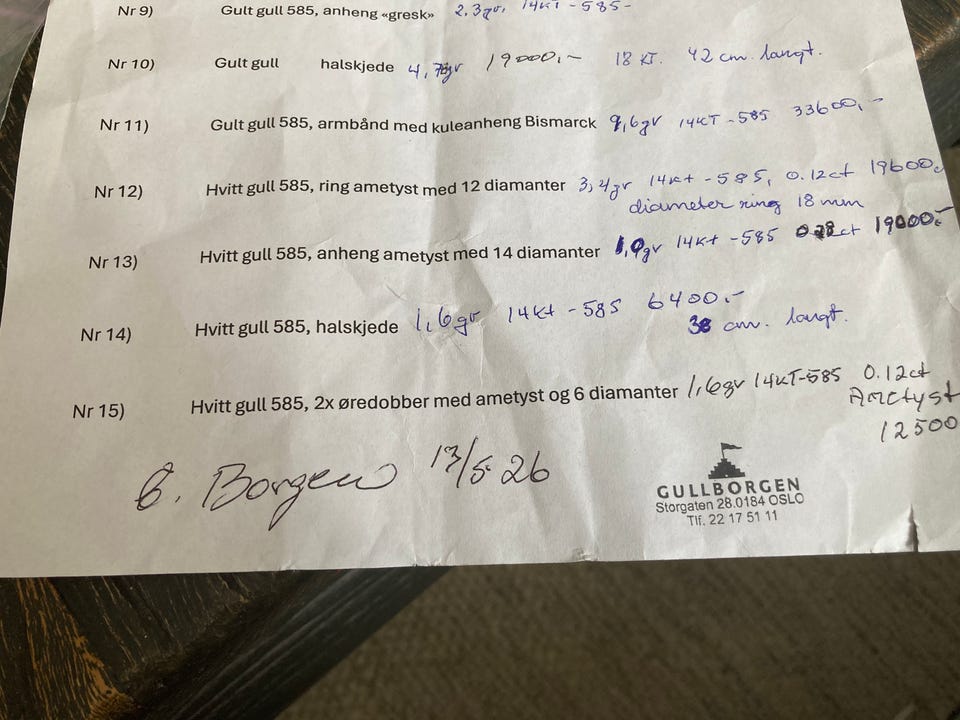 Nr 9) Gult gull 585, anheng «gresk» 2,3gr, 14KT-585-
Nr 10) Gult gull halskjede 4,7gr 19000,- 18 KT. 42 cm. langt.
Nr 11) Gult gull 585, armbånd med kuleanheng Bismarck 9,6gr 14KT-585 33600,-
Nr 12) Hvitt gull 585, ring ametyst med 12 diamanter 3,4gr 14kt-585, 0.12ct 19600,-
diameter ring 18 mm
Nr 13) Hvitt gull 585, anheng ametyst med 14 diamanter 1,0gr 14kt-585 0.28ct 19000,-
Nr 14) Hvitt gull 585, halskjede 1,6gr 14kt-585 6400,-
38 cm. langt.
Nr 15) Hvitt gull 585, 2x øredobber med ametyst og 6 diamanter 1,6gr 14KT-585 0.12ct
Ametyst
12500
B. Borgen 13/5 26
GULLBORGEN
Storgaten 28.0184 OSLO
Tlf. 22 17 51 11